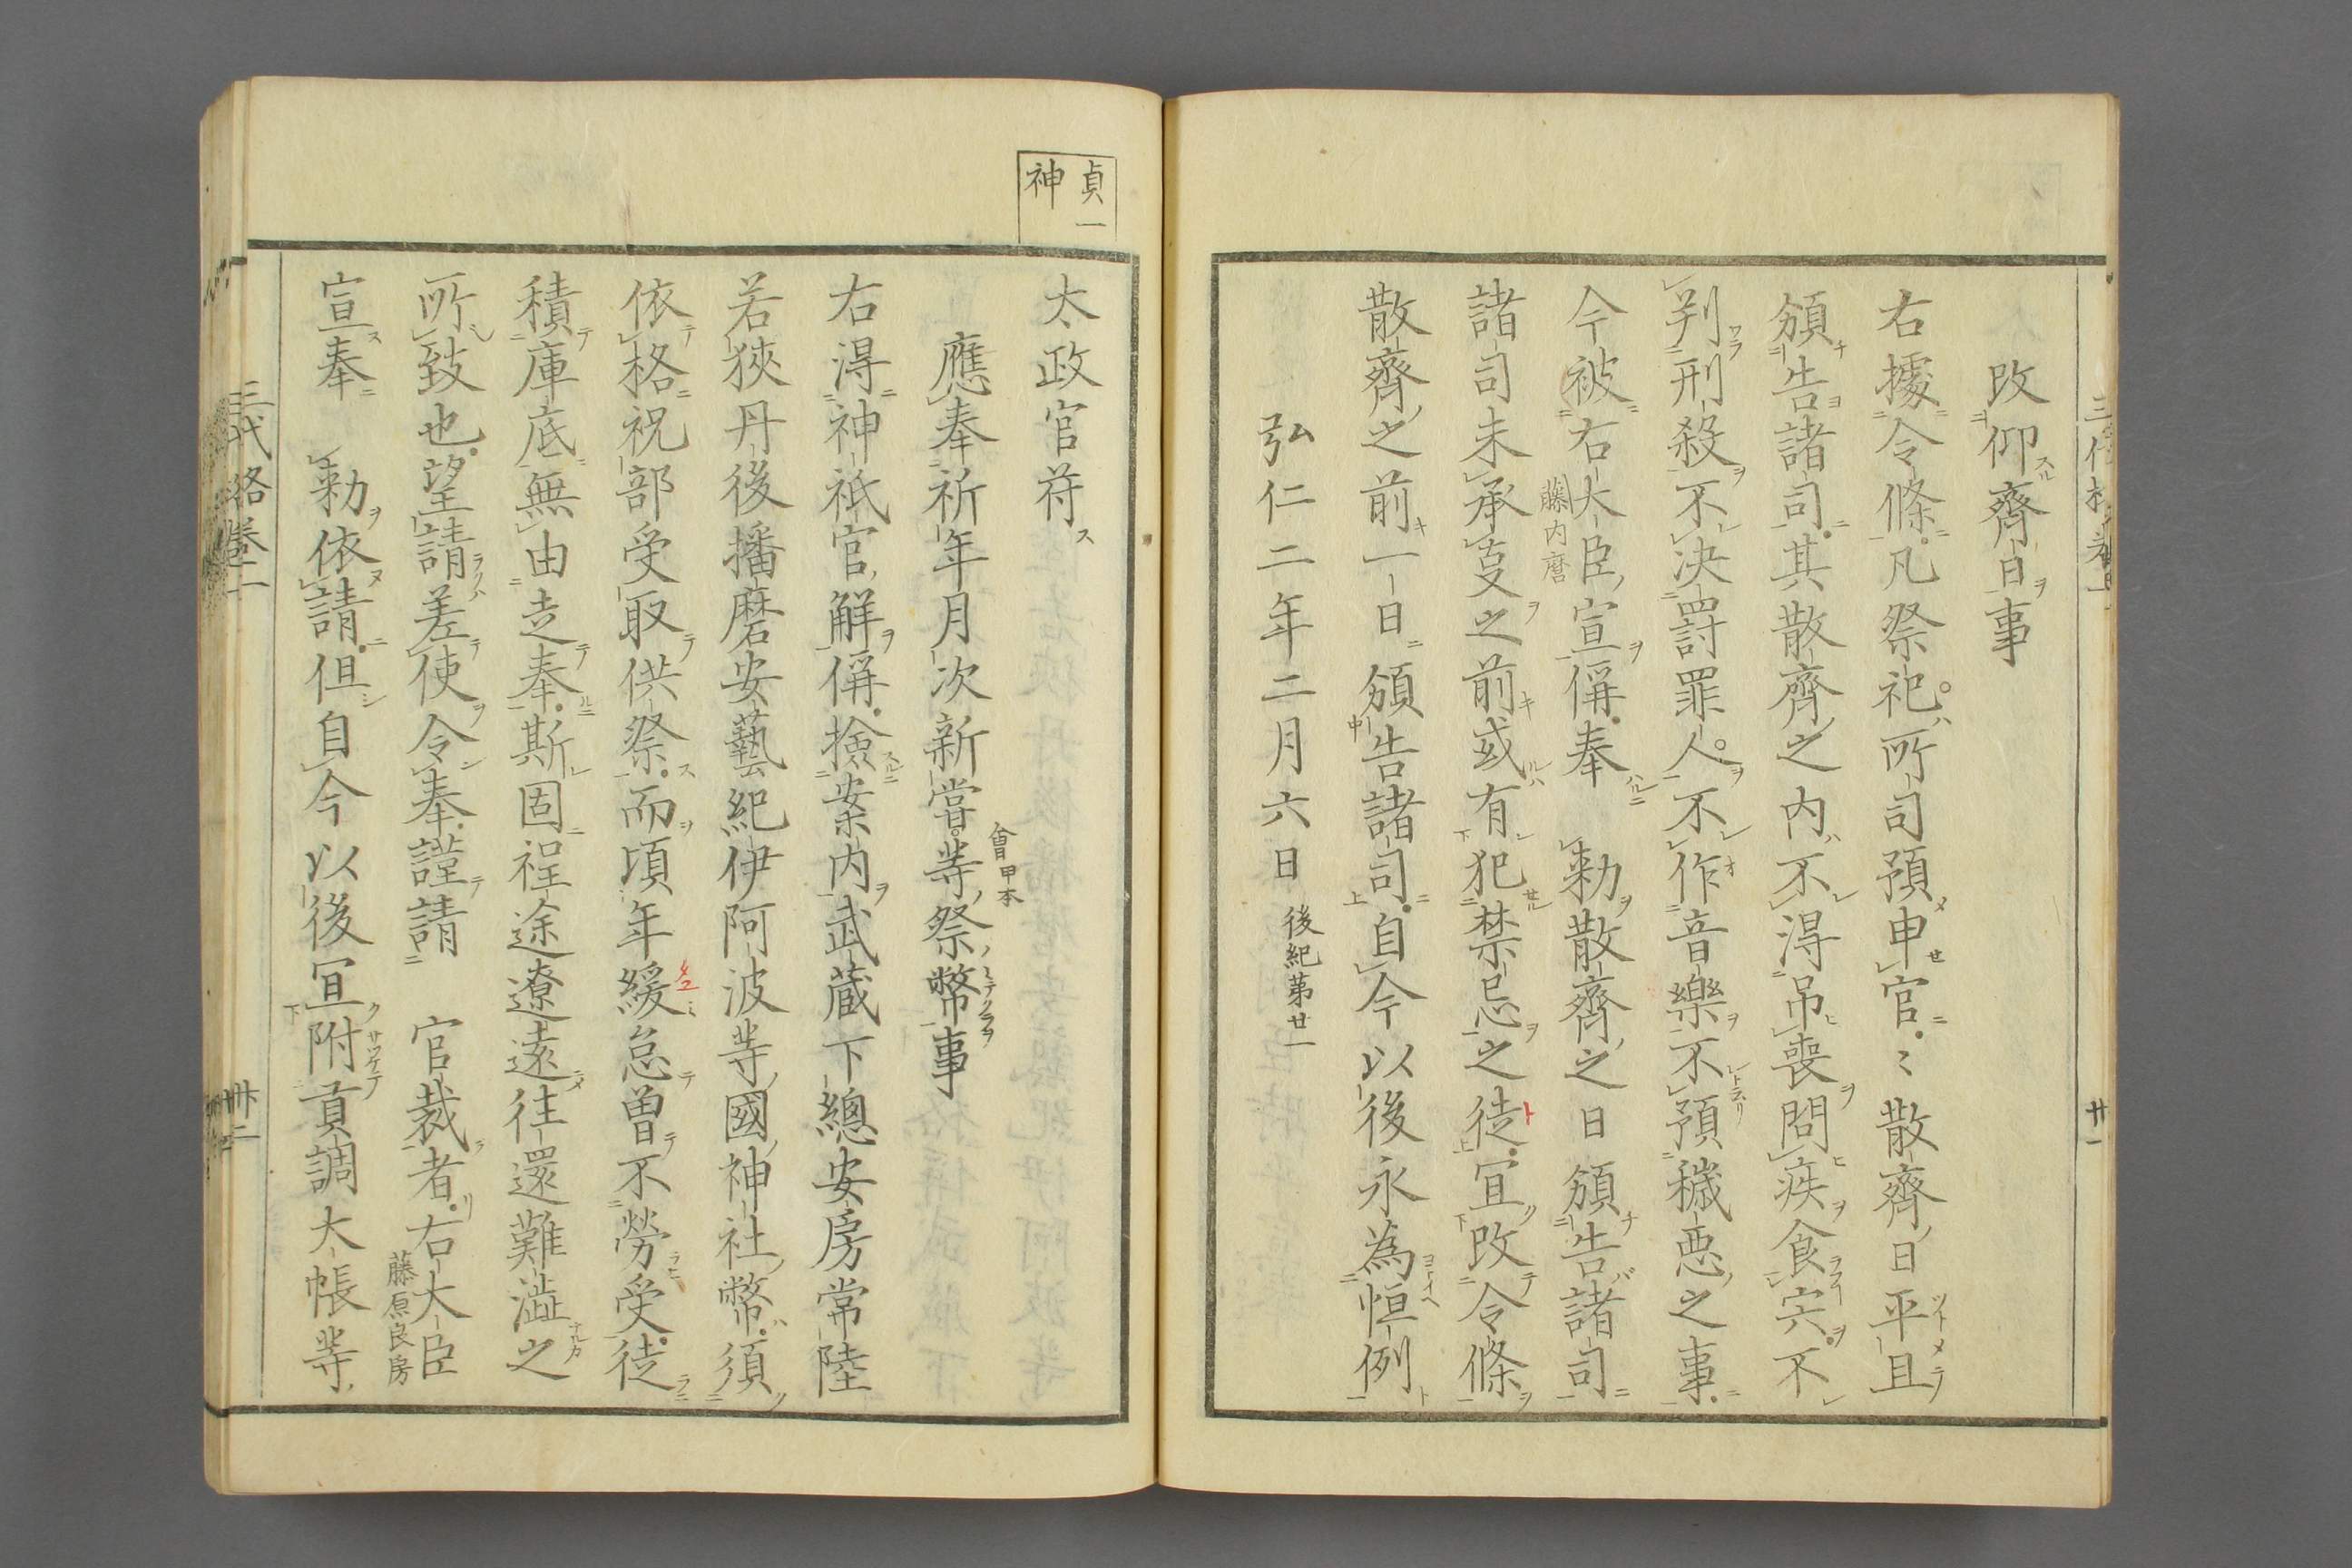 改仰齊日事
右據令條凡祭祀所司預申官〻散齊日平且
頒告諸司其散齊之内不得吊喪問疾食宍不
判刑殺不決罸罪人不作音樂不預穢悪之事
今被右大臣宣偁奉　勅散齊之日頒告諸司
藤内麿
諸司未承亙之前或有犯禁忌之徒冝改令條
散齊之前一日頒告諸司自今以後永為恒例
弘仁二年二月六日　後紀第廿一
廿一
貞一
神
太政官苻
應奉祈年月次新嘗等祭幣事
會甲本
右得神祇官解偁撿案内武蔵下總安房常陸
若狹丹後播磨安藝紀伊阿波等國神社幣須
依格祝部受取供祭而頃年緩怠曽不勞受徒
積庫底無由走奉斯固程途遼遠往還難澁之
所致也望請差使令奉謹請　官裁者右大臣
藤原良房
宣奉　勅依請但自今以後冝附貢調大帳等
三代格巻一
卅二